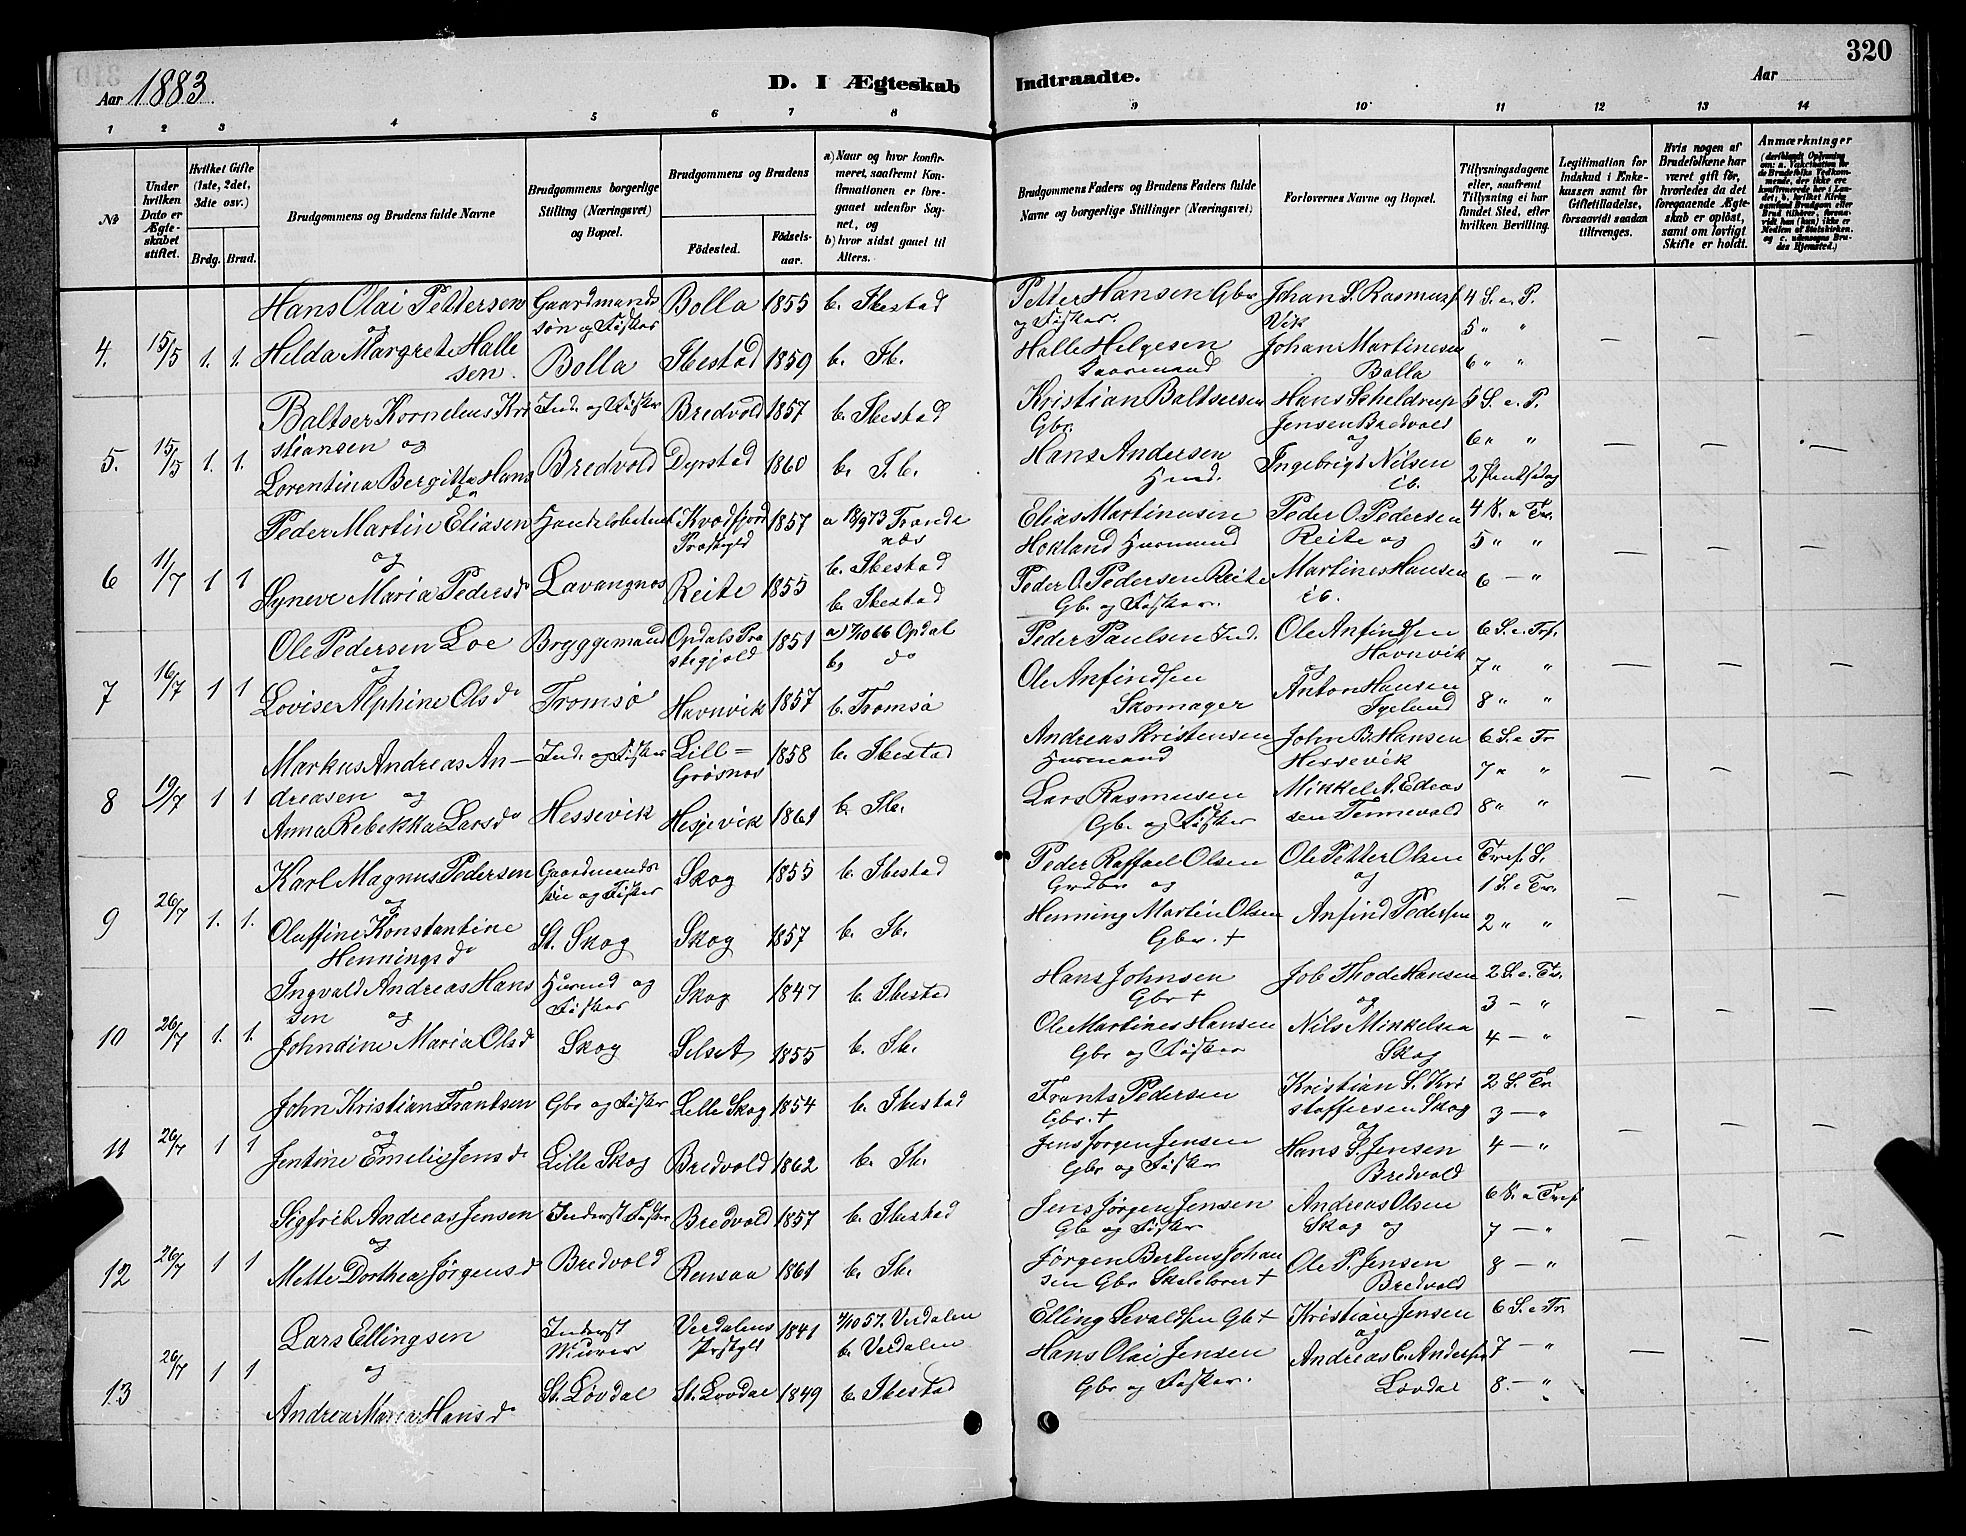 320
Aar 1883
D. I Ægteskab Indtraadte.
Aar
1 2 3 4 5 6 7 8 9 10 11 12 13 14
№
Under hvilken Dato er Ægteskabet stiftet.
Hvilket Gifte (1ste, 2det, 3die osv.)
Brdg. Brud.
Brudgommens og Brudens fulde Navne
Brudgommens borgerlige Stilling (Næringsvei) og Bopæl.
Brudgommens og Brudens
Födested.
Födsels-aar.
a) Naar og hvor konfirmeret, saafremt Konfirmationen er foregaaet udenfor Sognet, og
b) hvor sidst gaaet til Alters.
Brudgommens Faders og Brudens Faders fulde Navne og borgerlige Stillinger (Næringsvei)
Forlovernes Navne og Bopæl.
Tillysningsdagene eller, saafremt Tillysning ei har fundet Sted, efter hvilken Bevilling.
Legitimation for Indskud i Enkekassen samt for Giftetilladelse, forsaavidt saadan tiltrænges.
Hvis nogen af Brudefolkene har været gift før, hvorledes da det foregaaende Ægteskab er oplöst, samt om lovligt Skifte er holdt.
Anmærkninger
4. 15/5 1. 1.
Hans Olai Pettersen
og
Helda Margrete Halle
sen.
Gaardmands
søn og Fisker
Bolla
Bolla 1855 b. Ibestad
Ibestad 1859 b. Ib.
Petter Hansen Gbr
og Fisker.
Halle Helgesen
Gaarmand
Johan S. Rasmuss
Vik
Johan Martinesen
Bolla
4 S. e. P.
5 " "
6 " "
5. 15/5 1. 1.
Baltser Kornelius Kri
stiansen og
Lorentina Bergitta Hans
da
Ind. og Fisker
Bredvold
Bredvold 1857 b. Ibestad
Dyrstad 1860 b. Ib.
Kristian Baltsersen
Gbr.
Hans Andersen
Hmd.
Hans Scheldrup
Jensen Bredvold
og
Ingebrigt Nilsen
ib.
5 S. e. P.
6 " "
2 Pintsedag
6 11/7 1 1
Peder Martin Eliasen
og
Syneve Maria Pedersd
Handelsbetent
Lavangnes
Kvædfjord
Præstgjld 1857
Reite 1855
a 18/9 73 Trondenæs
b. Ibestad
b. Ibestad
Elias Martinusen
Hokland Husmand
Peder O. Pedersen Reite
Gb. og Fisker.
Peder O. Pedersen
Reite og
Martines Hansen
ib.
4 S. e Tr.
5 " "
6 — "
7 16/7 1 1
Ole Pedersen Loe
og
Lovise Alphine Olsd
Bryggemand
Tromsø
Opdals Præ
stegjeld 1851
Havnvik 1857
a) 7/10 66 Opdal
b, do
b. Tromsø
Peder Paulsen Ind.
Ole Anfindsen
Skomager
Ole Anfindsen
Havnvik
og
Anton Hansen
6 S. e. Tref.
7 " "
8 " "
8 19/7 1 1
Markus Andreas An—
dreasen og
Anna Rebekka Larsd
Ind. og Fisker
Hessevik
Lill=
Grøsnes 1858
Hesjevik 1861
b. Ibestad
b. Ib.
Andreas Kristensen
Husmand
Lars Rasmusen
Gb. og Fisker
John B. Hansen
Hessevik
Mikkel A. Edeas
sen Tennevold
6 S. e Tr
7 " "
8 " "
9 26/7 1. 1.
Karl Magnus Pedersen
og
Oluffine Konstantine
Hennings d
Gaardmands
søn og Fisker
St. Skog
Skog 1855 b. Ibestad
Skog 1857 b. Ib.
Peder Raffael Olsen
Grdbr og
Henning Martin Olsen
Gbr. +
Ole Petter Olsen
og
Anfind Pedersen
Tref. S.
1 S. e Tr.
2 " "
10 26/7 1. 1.
Ingvald Andreas Hans
sen og
Johndine Maria Olsd
Husmd og
Fisker
Skog
Skog 1847 b. Ibestad
Selset 1855 b. Ib.
Hans Johnsen
Gbr +
Ole Martines Hansen
Gbr og Fisker
Job Thode Hansen
og
Nils Mikkelsen
Skog
2 S. e. Tr.
3 — "
4 — "
11 26/7 1 1
John Kristian Frantsen
og
Jentine Emelie Jensd
Gbr og Fisker
Lille Skog
Lille Skog 1854 b. Ibestad
Bredvold 1862 b. Ib.
Frants Pedersen
Gbr. +
Jens Jørgen Jensen
Gbr og Fisker
Kristian S. Kri
stoffersen Skog
og
Hans S. Jensen
Bredvold
2 S. Tr
3 — "
4 — "
12 26/7 1 1
Sigfrib Andreas Jensen
og
Mette Dorthea Jørgensd
Inderst Fisker
Bredvold
Bredvold 1857 b. Ibestad
Rensaa 1861 b. Ib.
Jens Jørgen Jensen
Gb og Fisker
Jørgen Bertens Johan
sen Gbr Skolelærer +
Andreas Olsen
Skog og
Ole P. Jensen
Bredvold
6 S. e Tref.
7 — "
8 — "
13 26/7 1 1
Lars Ellingsen
og
Andrea Maria Hansd
Inderst
Murer
St. Løvdal
Verdalens
Prstgld 1841
St. Lovdal 1849
7/10 57. Verdalen
b. Verdalen
b. Ibestad
Elling Sevaldsen Gb +
Hans Olai Jensen
Gbr og Fisker.
Kristian Jensen
og
Andreas C. Andersen
Løvdal
6 S. e Tr
7 — "
8. — "